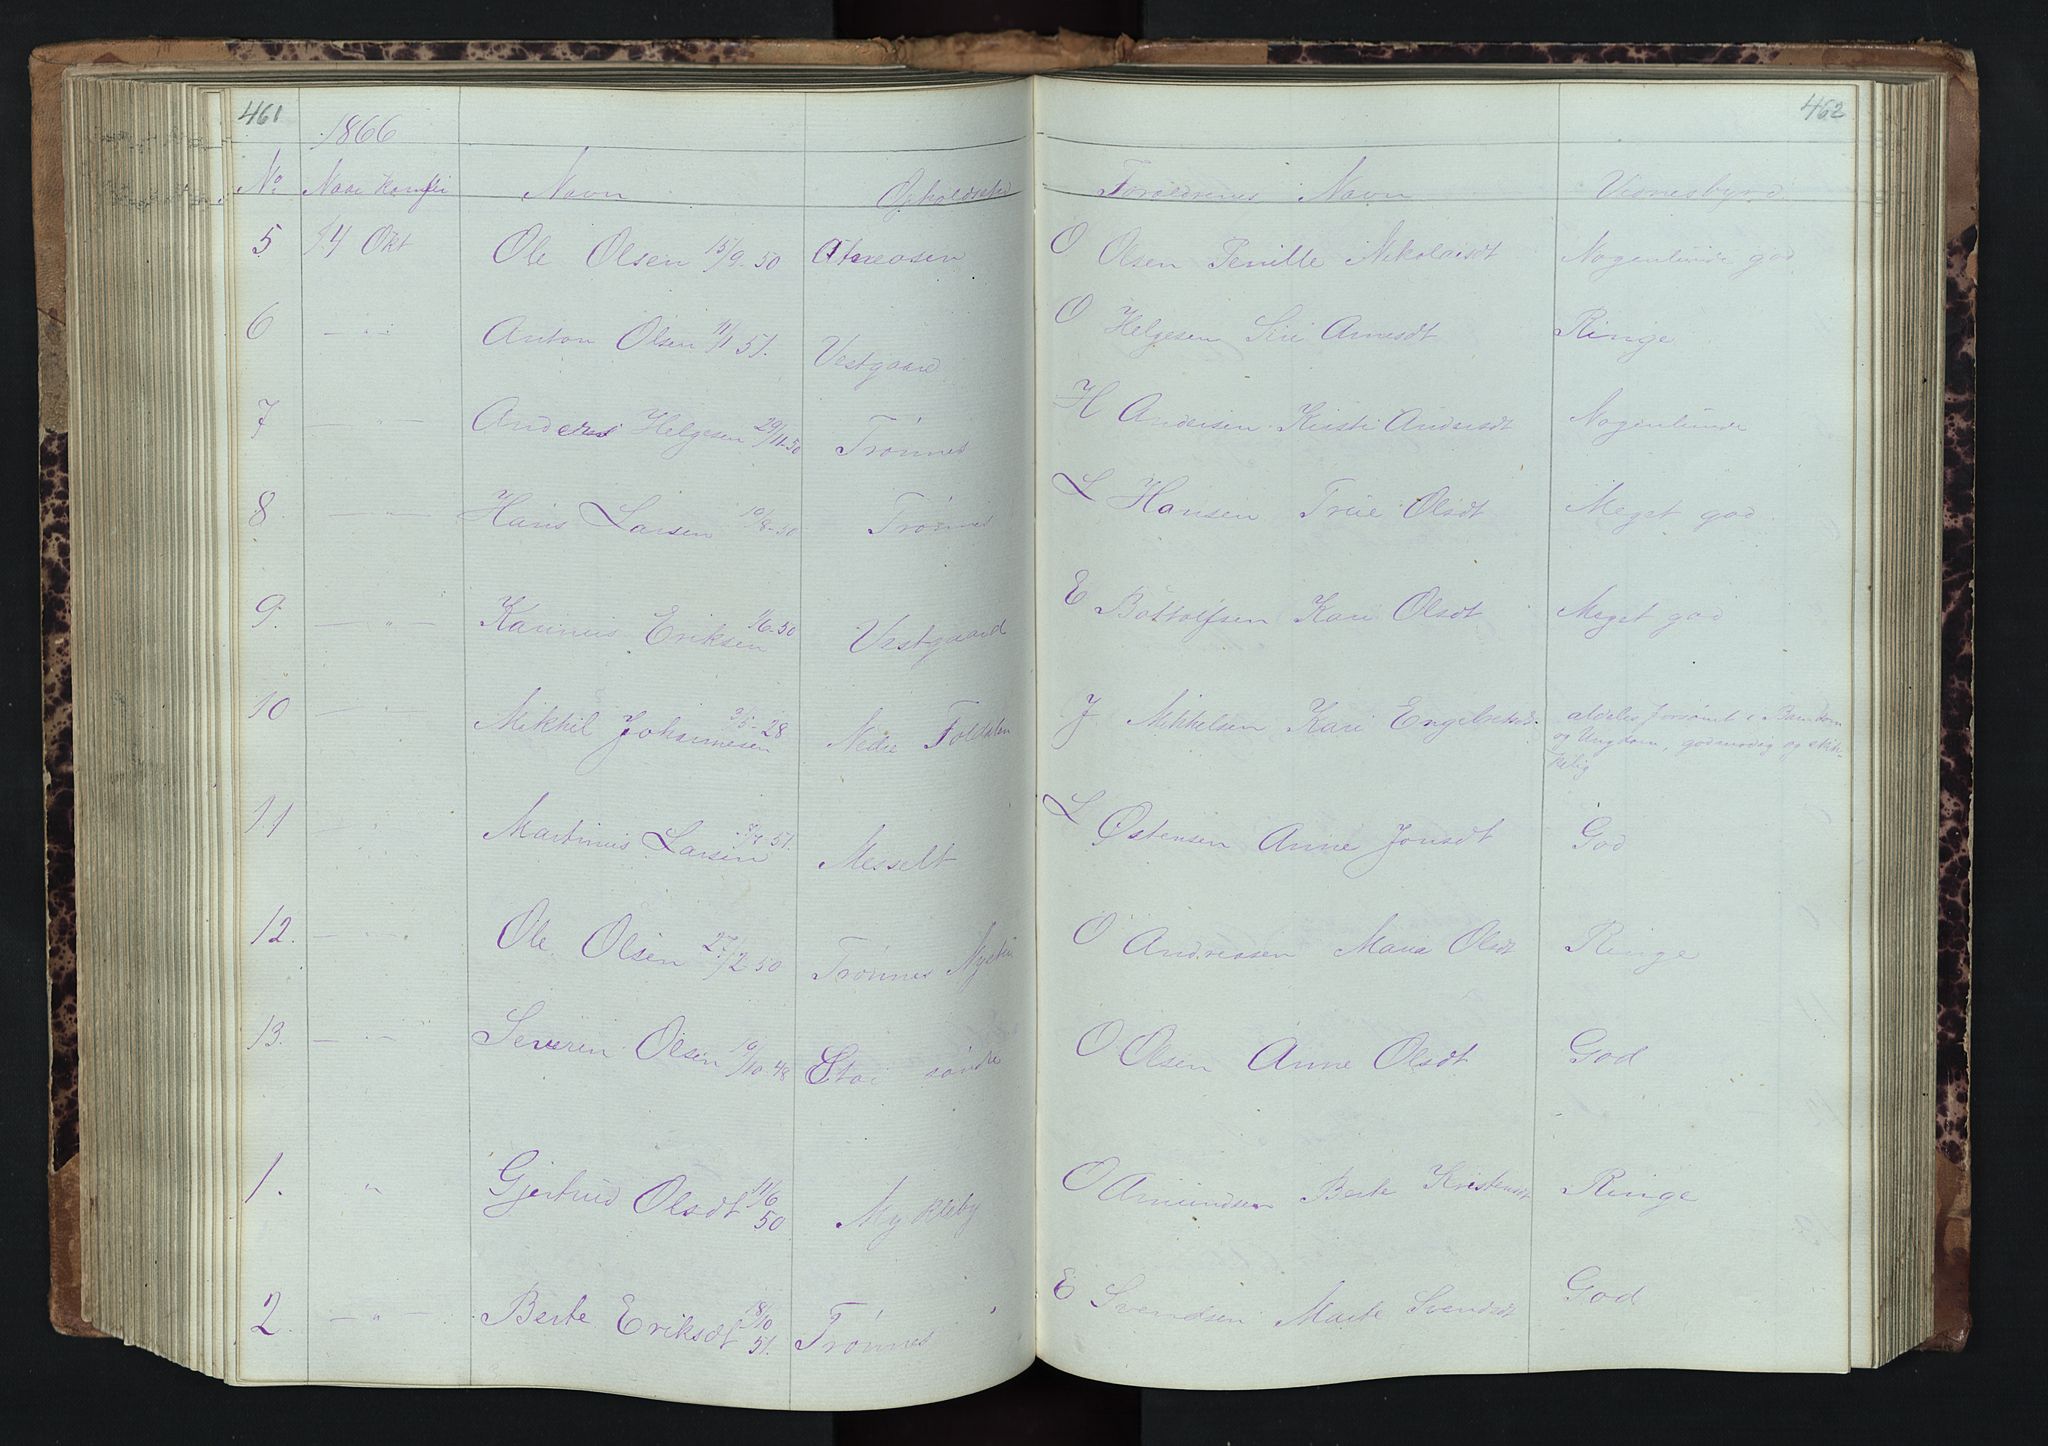 461
462
1866
No Naar Konfir Navn Opholdsted Forældrenes Navn
5 14 Okt Ole Olsen 15/9-50 Atneosen O Olsen Pernille Nikolaisdt Nogenlunde god
6 — " — Anton Olsen 11/1 51. Vestgaard O Helgesen Siri Arnesdt Ringe
7 — " — Anders Helgesen 29/11-50 Trønnes H Andersen Kirsti Andersdt Nogenlunde
8 — " — Hans Larsen 10/8-50 Trønnes L Hansen Olsdt Meget god
9. — " — Karinus Eriksen 1/6-50 Vestgaard E Bottolfsen Kari Olsdt Meget god
10 — " — Mikkel Johannesen 3/5-28 Nedre Foldalen J Mikkelsen Kari Engebretsdt. aldeles forsømt i Barndom
og Ungdom, godmodig og skik-
kelig
11 — " — Martinus Larsen 51. Messelt L Østensen Anne Jonsdt God
12. — " — Ole Olsen 27/2-50 Trønnes O Andreasen Maria Olsdt Ringe
13. — " — Severin Olsen 10/10-48 Stai søndre O Olsen Anne Olsdt God
1. " Gjertrud Olsdt 11/6 50 Mykleby O Amundsen Berte Kristensdt Ringe
2. — " — Berte Eriksdt 18/10 51. Trønnes E Svendsen Marte Svendsdt God